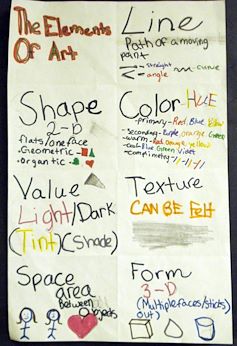 The Elements
Of Art
Line
Path of a moving
point
straight
angle
curve
Shape
2-D
flats/oneface
Geometric
Organtic
Color HUE
-primary-Red, Blue, Yellow
-Secondary-Purple orange Green
-warm-Red, orange, yellow
-cool-Blue Green Violet
-complimetry-
Value
Light/Dark
(Tint)(Shade)
Texture
CAN BE Felt
Space
area
Between
objects
Form
3-D
(Multiplefaces/sticks
out)